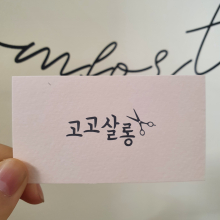 고고살롱